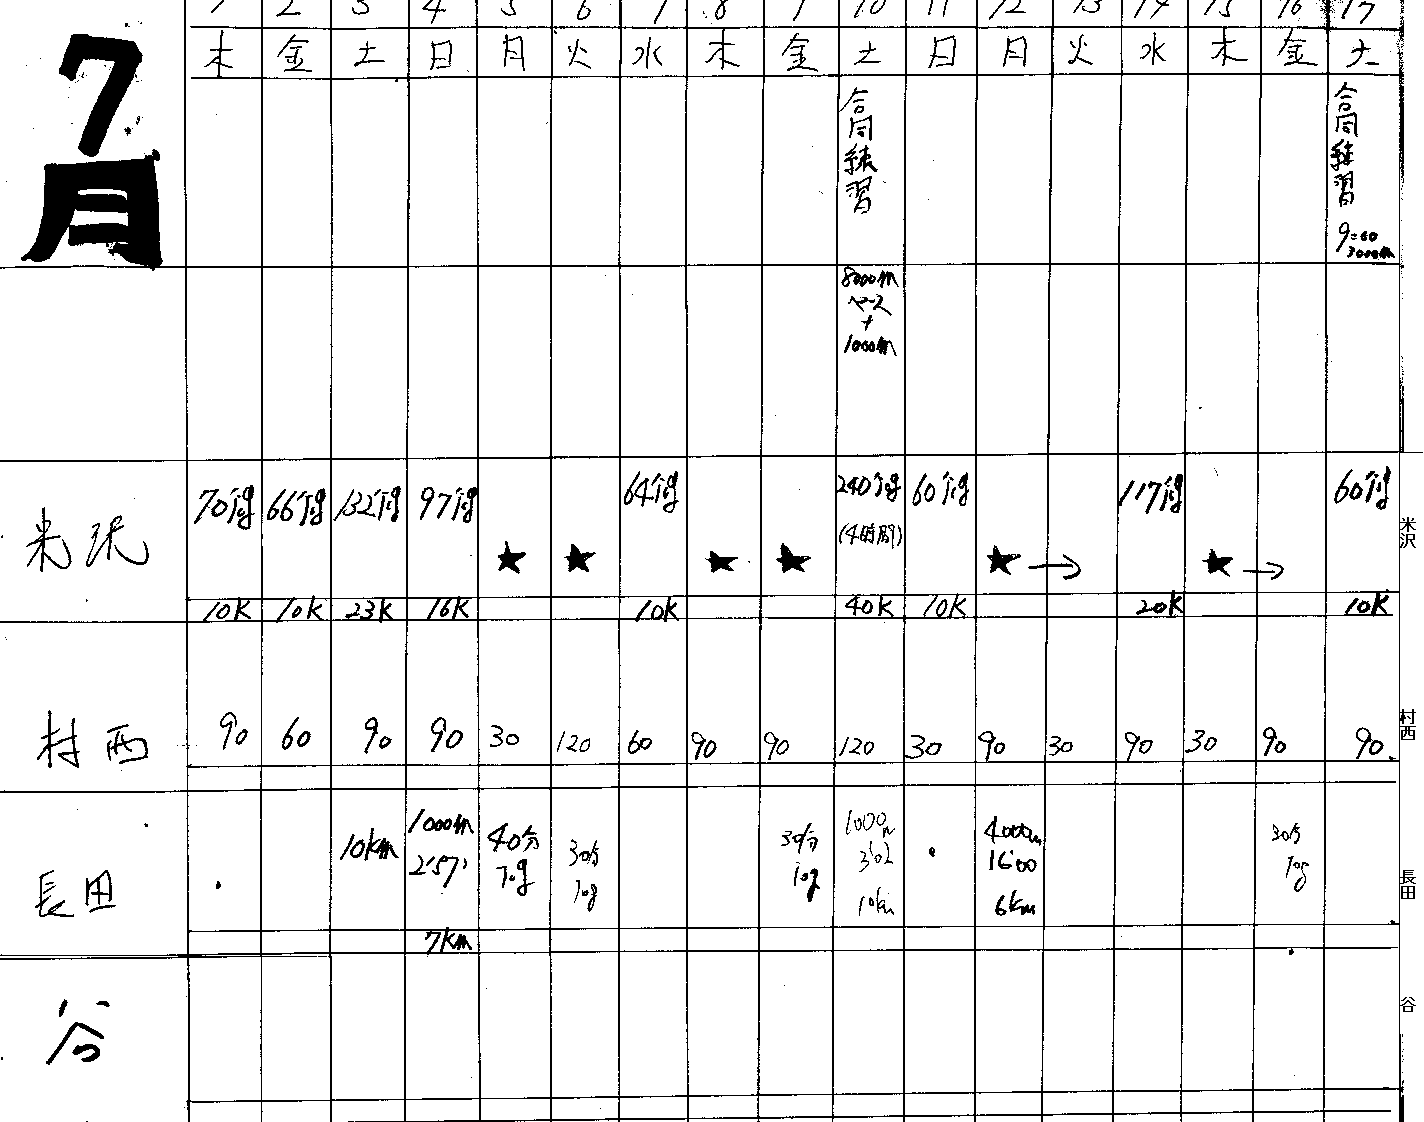 7月
1 2 3 4 5 6 7 8 9 10 11 12 13 14 15 16 17
木 金 土 日 月 火 水 木 金 土 日 月 火 水 木 金 土
合同練習
合同練習
9:00
3000m
8000m
ペース
+
1000m
米沢
70分jog 66分jog 132分jog 97分jog ★ ★ 64分jog ★ ★ 240分jog 60分jog ★→ 117分jog ★→ 60分jog
(4時間)
10K 10K 23K 16K 10K 40K 10K 20K 10K
米沢
村西
90 60 90 90 30 120 60 90 90 120 30 90 30 90 30 90 90
村西
長田
10km
1000m
2'57"
7km
40分
jog
30分
jog
30分
jog
1000m
3'02
10km
4000m
16'00
6km
30分
jog
長田
谷
谷